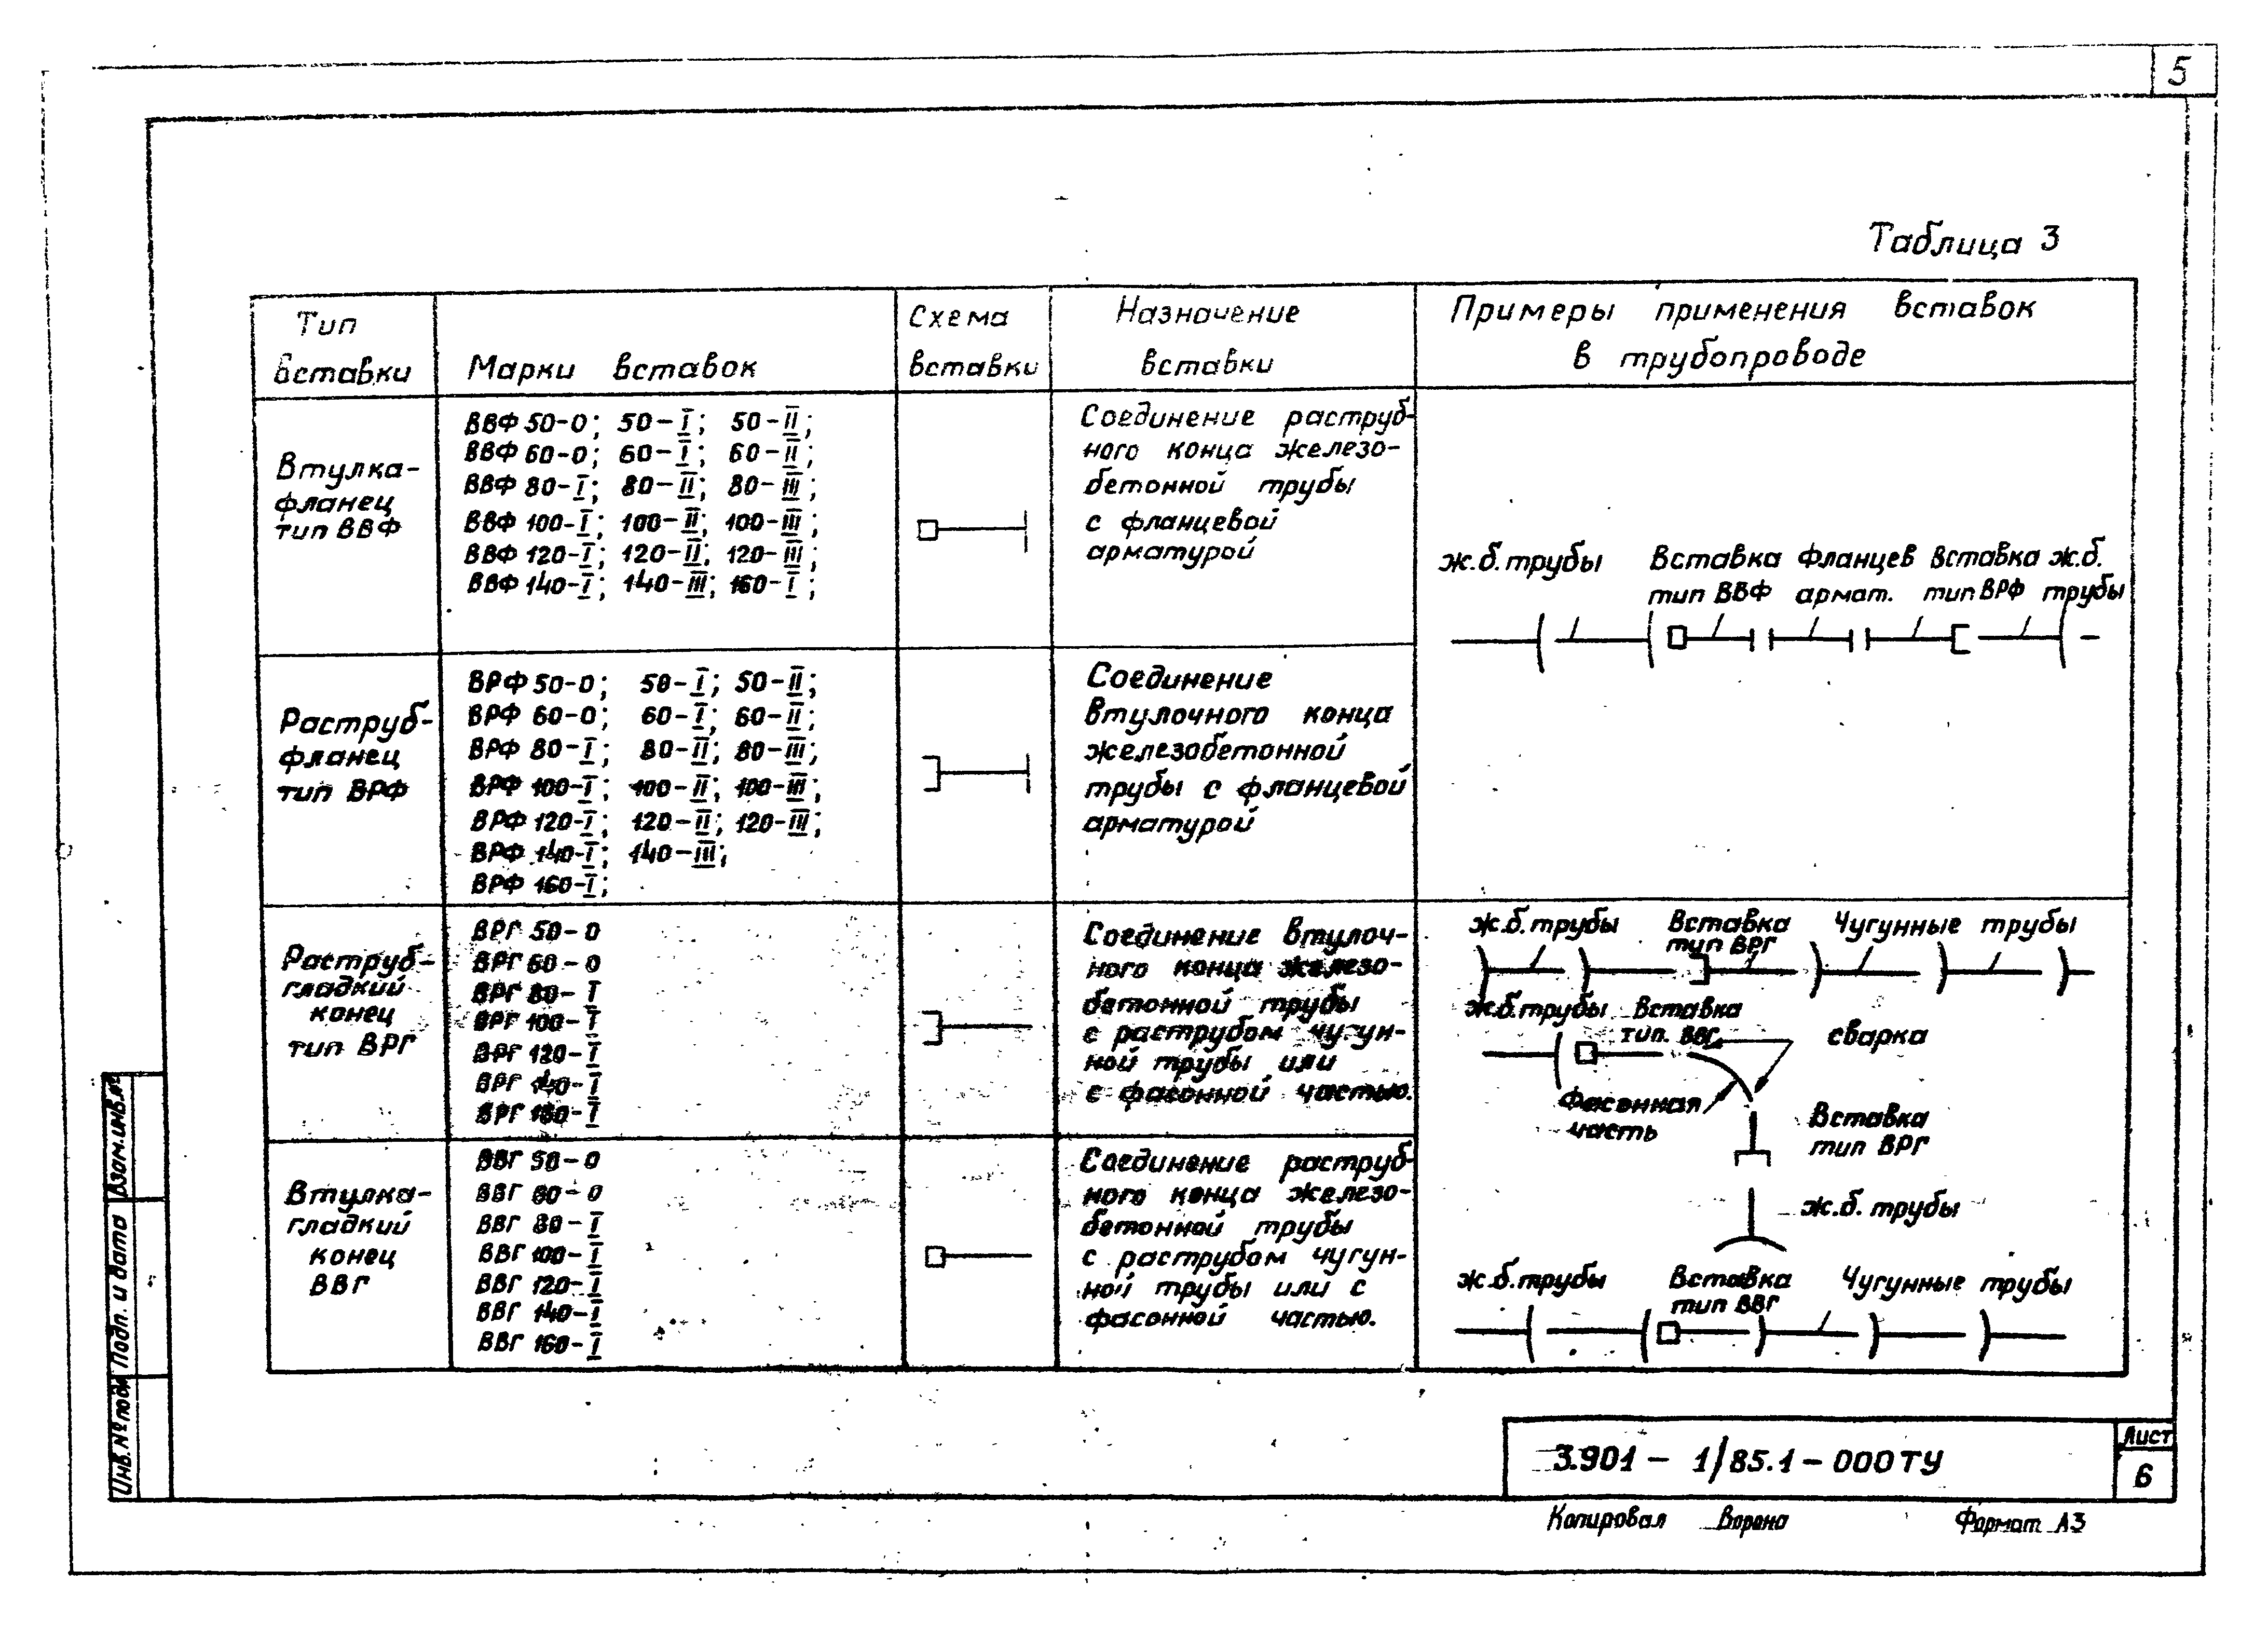 5
Таблица 3
Тип
вставки
Марки вставок
Схема
вставки
Назначение
вставки
Примеры применения вставок
в трубопроводе
Втулка-
фланец
тип ВВФ
ВВФ 50-0; 50-I; 50-II;
ВВФ 60-0; 60-I; 60-II;
ВВФ 80-I; 80-II; 80-III;
ВВФ 100-I; 100-II; 100-III;
ВВФ 120-I; 120-II; 120-III;
ВВФ 140-I; 140-III; 160-I;
Соединение раструб-
ного конца железо-
бетонной трубы
с фланцевой
арматурой
ж.б. трубы Вставка Фланцев Вставка ж.б.
тип ВВФ армат. тип ВРФ трубы
Раструб-
фланец
тип ВРФ
ВРФ 50-0; 50-I; 50-II;
ВРФ 60-0; 60-I; 60-II;
ВРФ 80-I; 80-II; 80-III;
ВРФ 100-I; 100-II; 100-III;
ВРФ 120-I; 120-II; 120-III;
ВРФ 140-I; 140-III;
ВРФ 160-I;
Соединение
втулочного конца
железобетонной
трубы с фланцевой
арматурой
Раструб-
гладкий
конец
тип ВРГ
ВРГ 50-0
ВРГ 60-0
ВРГ 80-I
ВРГ 100-I
ВРГ 120-I
ВРГ 140-I
ВРГ 160-I
Соединение втулоч-
ного конца железо-
бетонной трубы
с раструбом чугун-
ной трубы или
с фасонной частью.
ж.б. трубы Вставка Чугунные трубы
тип ВРГ
ж.б. трубы Вставка
тип. ВВГ сварка
Фасонная
часть
Вставка
тип ВРГ
ж.б. трубы
Втулка-
гладкий
конец
ВВГ
ВВГ 50-0
ВВГ 60-0
ВВГ 80-I
ВВГ 100-I
ВВГ 120-I
ВВГ 140-I
ВВГ 160-I
Соединение раструб-
ного конца железо-
бетонной трубы
с раструбом чугун-
ной трубы или с
фасонной частью.
ж.б. трубы Вставка Чугунные трубы
тип ВВГ
Взам.инв.№
Подп. и дата
Инв.№ подл
3.901-1/85.1-000ТУ
Лист
6
Копировал Ворона Формат А3